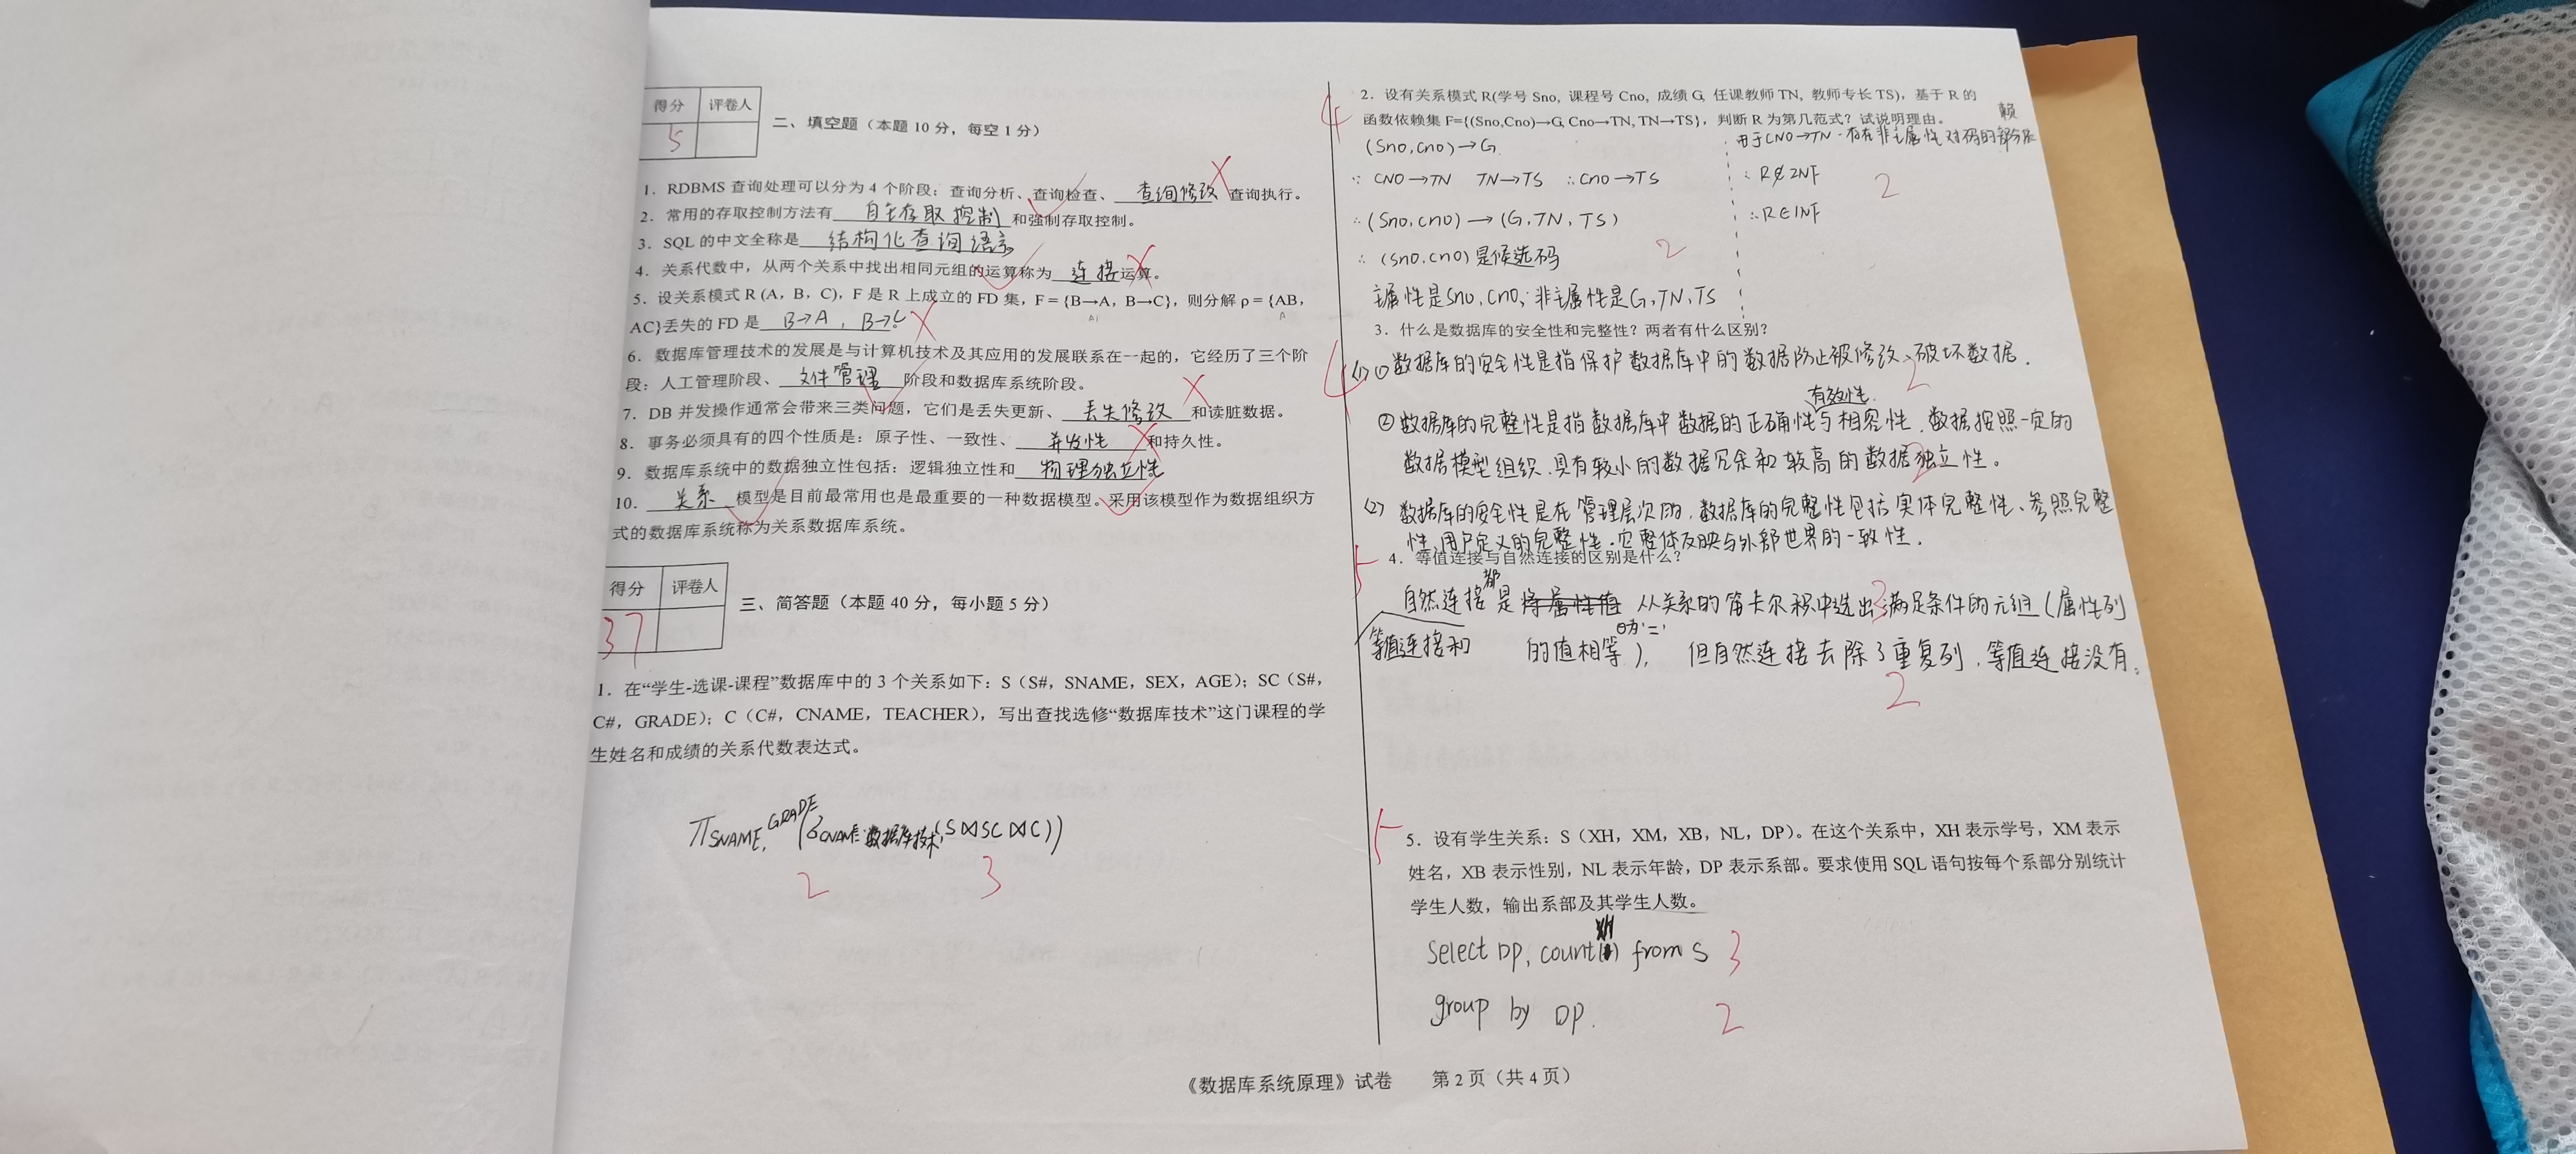 得分 评卷人
5
二、填空题（本题 10 分，每空 1 分）
1．RDBMS 查询处理可以分为 4 个阶段：查询分析、查询检查、 查询修改 查询执行。
2．常用的存取控制方法有 自主存取控制 和强制存取控制。
3．SQL 的中文全称是 结构化查询语言
4．关系代数中，从两个关系中找出相同元组的运算称为 连接 运算。
5．设关系模式 R (A，B，C)，F 是 R 上成立的 FD 集，F = {B→A，B→C}，则分解 ρ = {AB，
AC}丢失的 FD 是 B→A，B→C
6．数据库管理技术的发展是与计算机技术及其应用的发展联系在一起的，它经历了三个阶
段：人工管理阶段、 文件管理 阶段和数据库系统阶段。
7．DB 并发操作通常会带来三类问题，它们是丢失更新、 丢失修改 和读脏数据。
8．事务必须具有的四个性质是：原子性、一致性、 并发性 和持久性。
9．数据库系统中的数据独立性包括：逻辑独立性和 物理独立性
10． 关系 模型是目前最常用也是最重要的一种数据模型。采用该模型作为数据组织方
式的数据库系统称为关系数据库系统。
得分 评卷人
37
三、简答题（本题 40 分，每小题 5 分）
1．在“学生-选课-课程”数据库中的 3 个关系如下：S（S#，SNAME，SEX，AGE）；SC（S#，
C#，GRADE）；C（C#，CNAME，TEACHER），写出查找选修“数据库技术”这门课程的学
生姓名和成绩的关系代数表达式。
π SNAME, GRADE (σ CNAME='数据库技术' (S⋈SC⋈C))
2 3
4
2．设有关系模式 R(学号 Sno, 课程号 Cno, 成绩 G, 任课教师 TN, 教师专长 TS)，基于 R 的
函数依赖集 F={(Sno,Cno)→G, Cno→TN, TN→TS}，判断 R 为第几范式？试说明理由。
(Sno,Cno)→G
∵ CNO→TN TN→TS ∴Cno→TS
∴(Sno,cno)→(G,TN,TS)
∴ (Sno,cno)是候选码 2
主属性是Sno,Cno; 非主属性是G,TN,TS
由于CNO→TN·存在非主属性对码的部分依赖
∴R∉2NF 2
∴R∈1NF
3．什么是数据库的安全性和完整性？两者有什么区别？
4
(1)①数据库的安全性是指保护数据库中的数据防止被修改、破坏数据． 2
②数据库的完整性是指数据库中数据的正确性有效性与相容性，数据按照一定的
数据模型组织、具有较小的数据冗余和较高的数据独立性。 2
(2) 数据库的安全性是在管理层次的，数据库的完整性包括实体完整性、参照完整
性、用户定义的完整性．它整体反映与外部世界的一致性．
5
4．等值连接与自然连接的区别是什么？
等值连接和自然连接都是从关系的笛卡尔积中选出满足条件的元组（属性列 3
的值相等），但自然连接去除了重复列，等值连接没有。
2
5
5．设有学生关系：S（XH，XM，XB，NL，DP）。在这个关系中，XH 表示学号，XM 表示
姓名，XB 表示性别，NL 表示年龄，DP 表示系部。要求使用 SQL 语句按每个系部分别统计
学生人数，输出系部及其学生人数。
Select DP, count(XH) from S 3
group by DP. 2
《数据库系统原理》试卷 第 2 页（共 4 页）